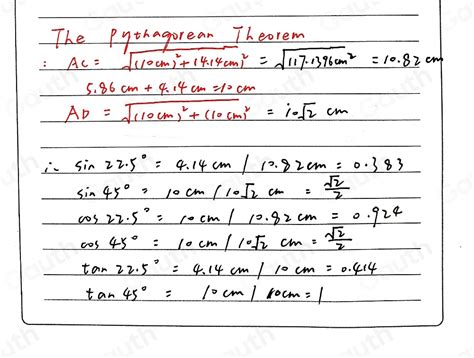 The Pythagorean Theorem
: AC = √(10cm)² + (4.14cm)² = √117.1396cm² = 10.82 cm
5.86 cm + 4.14 cm = 10 cm
AD = √(10cm)² + (10cm)² = 10√2 cm
∴ sin 22.5° = 4.14 cm / 10.82cm = 0.383
sin 45° = 10 cm / 10√2 cm = √2/2
cos 22.5° = 10 cm / 10.82 cm = 0.924
cos 45° = 10 cm / 10√2 cm = √2/2
tan 22.5° = 4.14 cm / 10 cm = 0.414
tan 45° = 10 cm / 10cm = 1